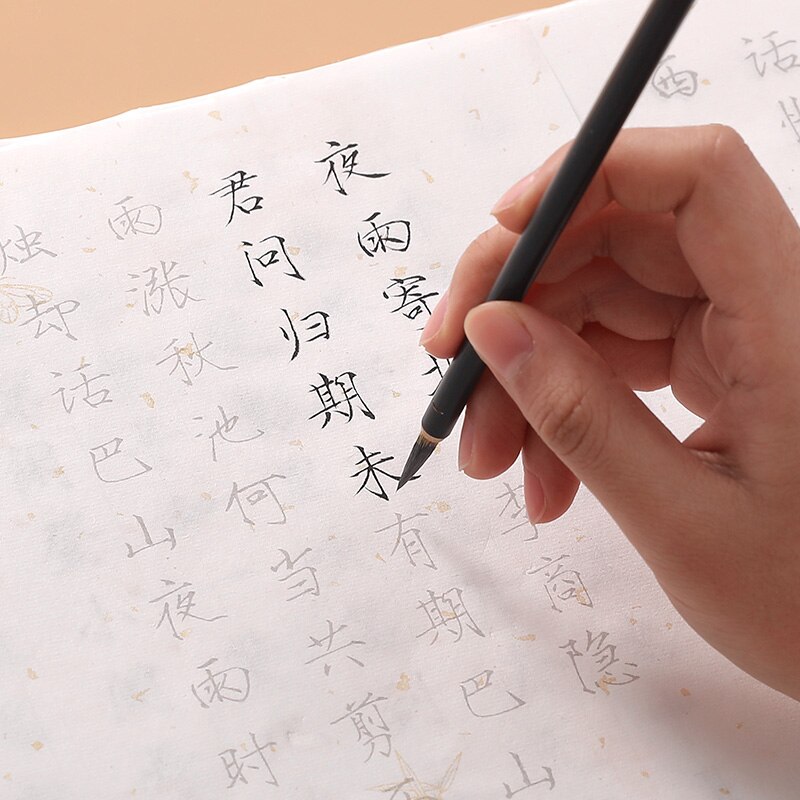 话
西
夜雨寄 李商隐
君问归期未有期巴山
雨涨秋池何当共剪
烛却话巴山夜雨时